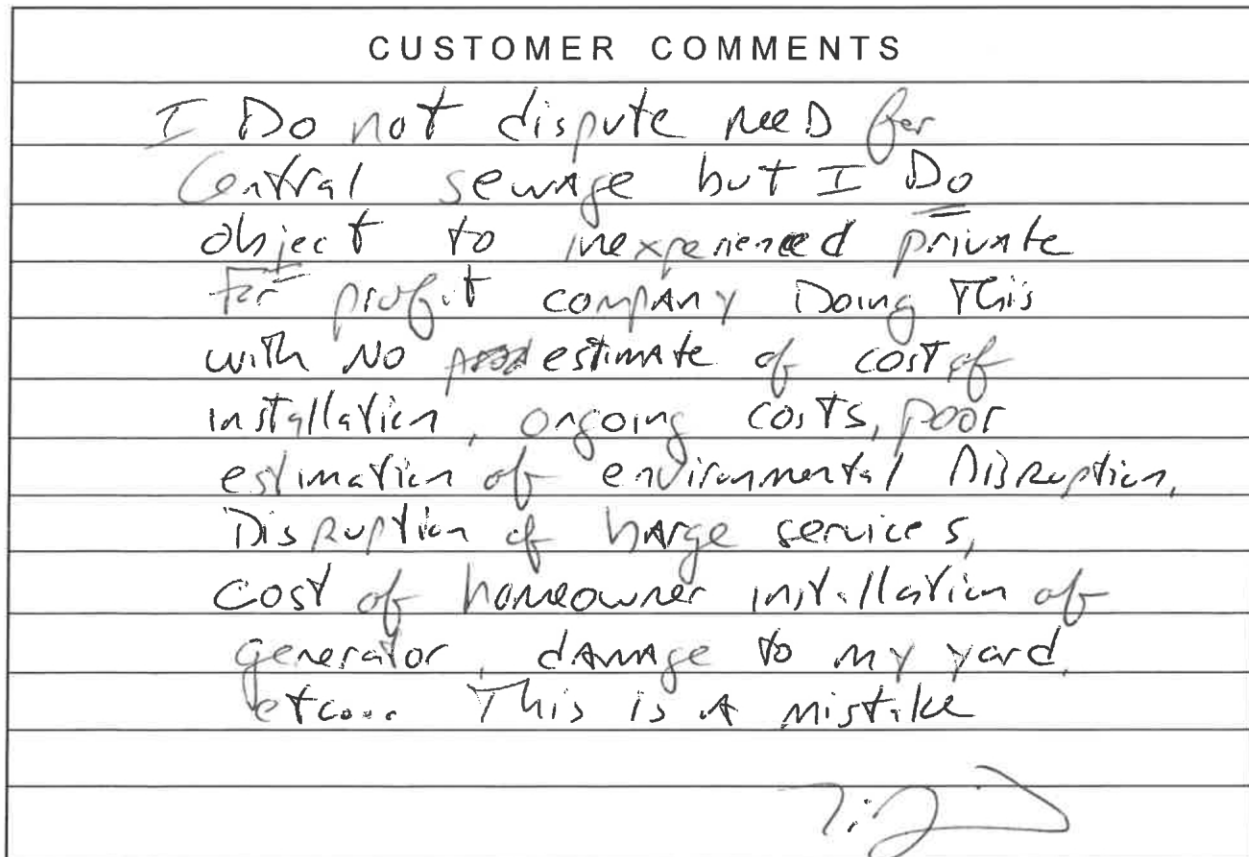 CUSTOMER COMMENTS
I Do not dispute neeD for
Central sewage but I Do
object to inexperienced private
For profit company Doing This
with No estimate of cost of
installation, ongoing costs, poor
estimation of environmental DISRuption,
DisRuption of barge services,
cost of homeowner installation of
generator, damage to my yard,
etc... This is A mistake